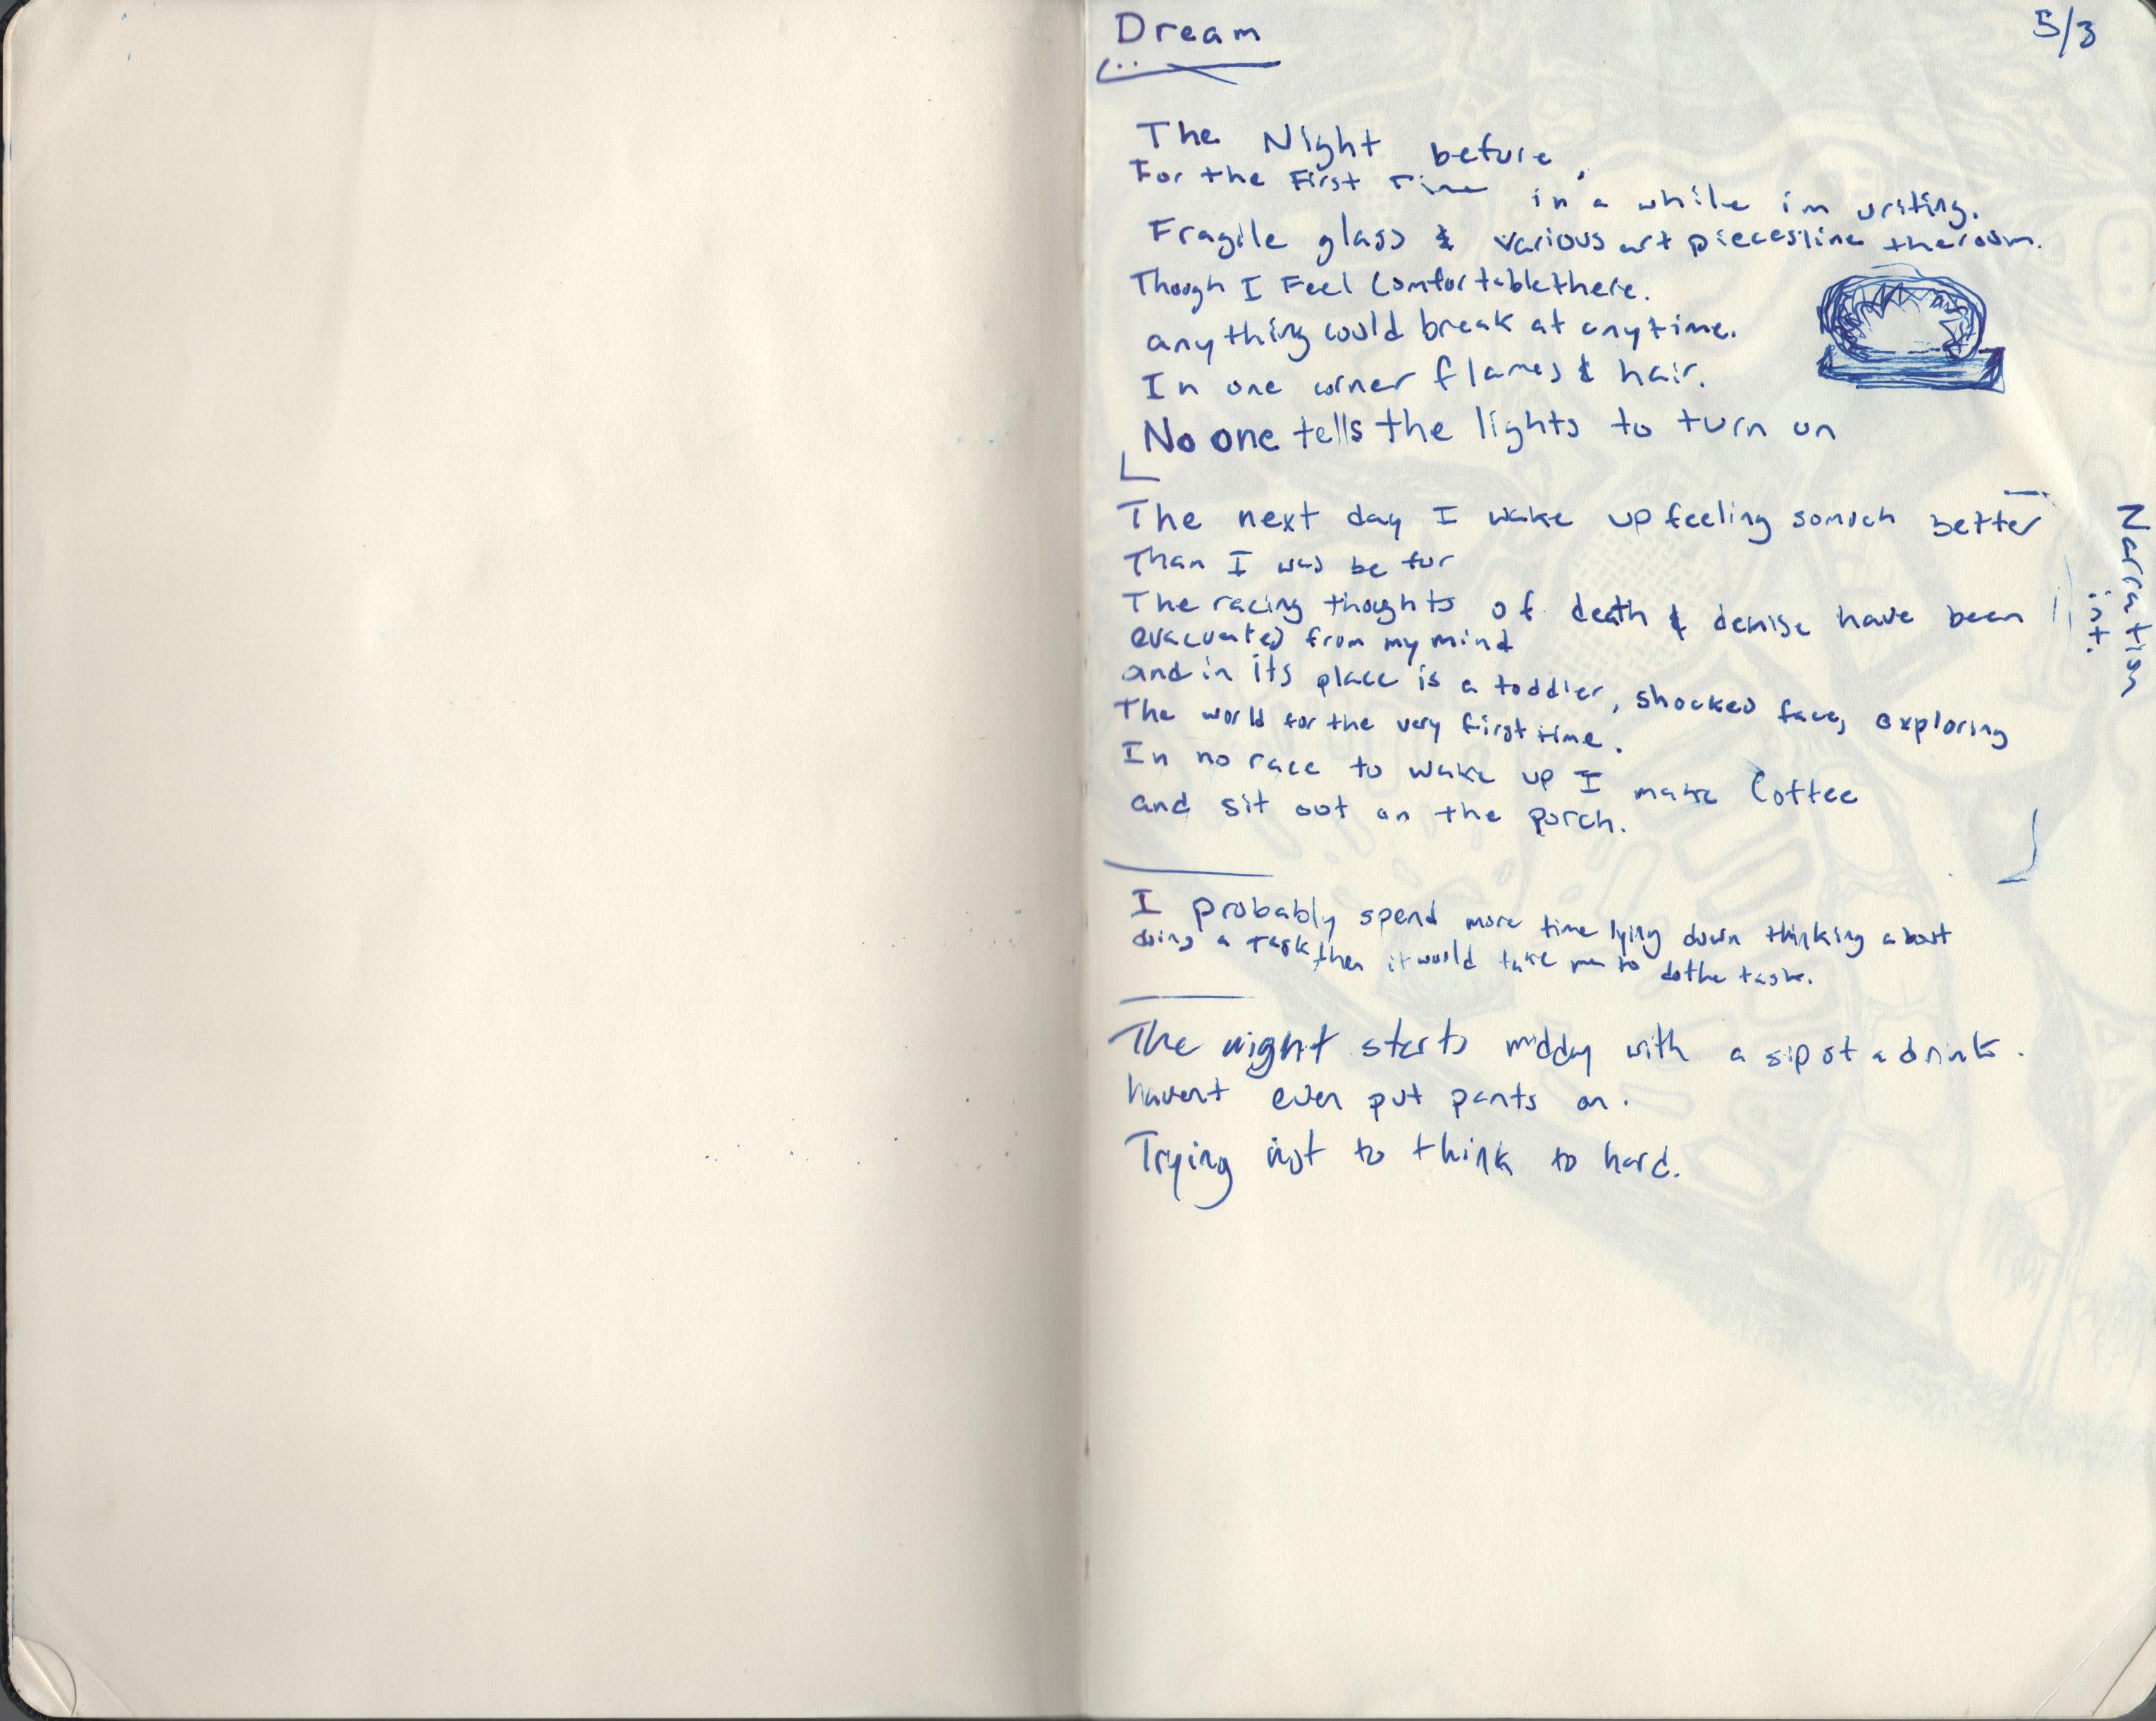 Dream
5/3
The Night before,
For the First Time in a while im writing.
Fragile glass & various art pieces line the room.
Though I Feel Comfortable there.
anything could break at anytime.
In one corner flames & hair.
No one tells the lights to turn on
The next day I wake up feeling so much better
Than I was befor
The racing thoughts of death & demise have been
evacuated from my mind
and in its place is a toddler, shocked face, exploring
The world for the very first time.
In no race to wake up I make Coffee
and sit out on the porch.
Narration
I probably spend more time lying down thinking about
doing a task then it would take me to do the task.
The night starts midday with a sip of a drink.
havent even put pants on.
Trying not to think to hard.